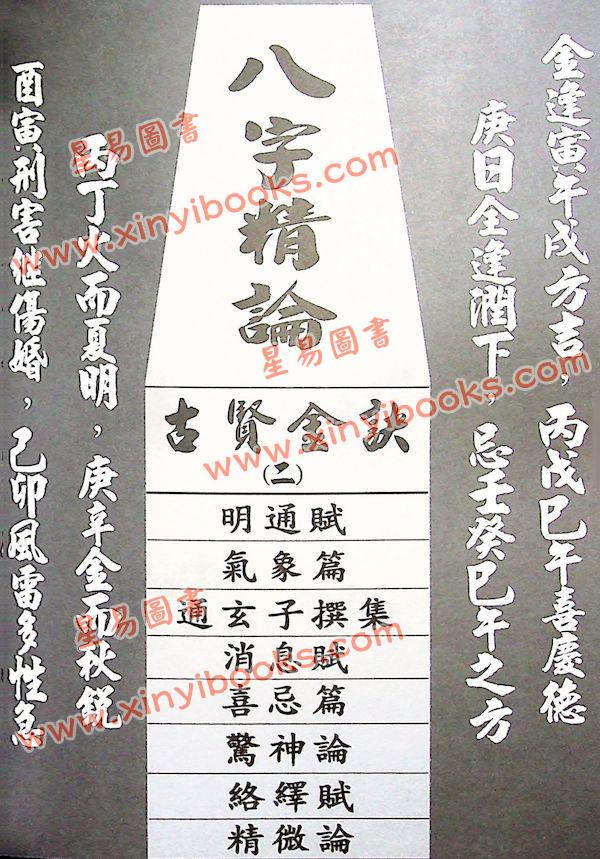 金逢寅午戌方吉，丙戊巳午喜慶德
庚日全逢潤下，忌壬癸巳午之方
八字精論
古賢金訣
(二)
明通賦
氣象篇
通玄子撰集
消息賦
喜忌篇
驚神論
絡繹賦
精微論
丙丁火而夏明，庚辛金而秋銳
酉寅刑害继傷婚，己卯風雷多性急
星易圖書
www.xinyibooks.com
星易圖書
www.xinyibooks.com
星易圖書
www.xinyibooks.com